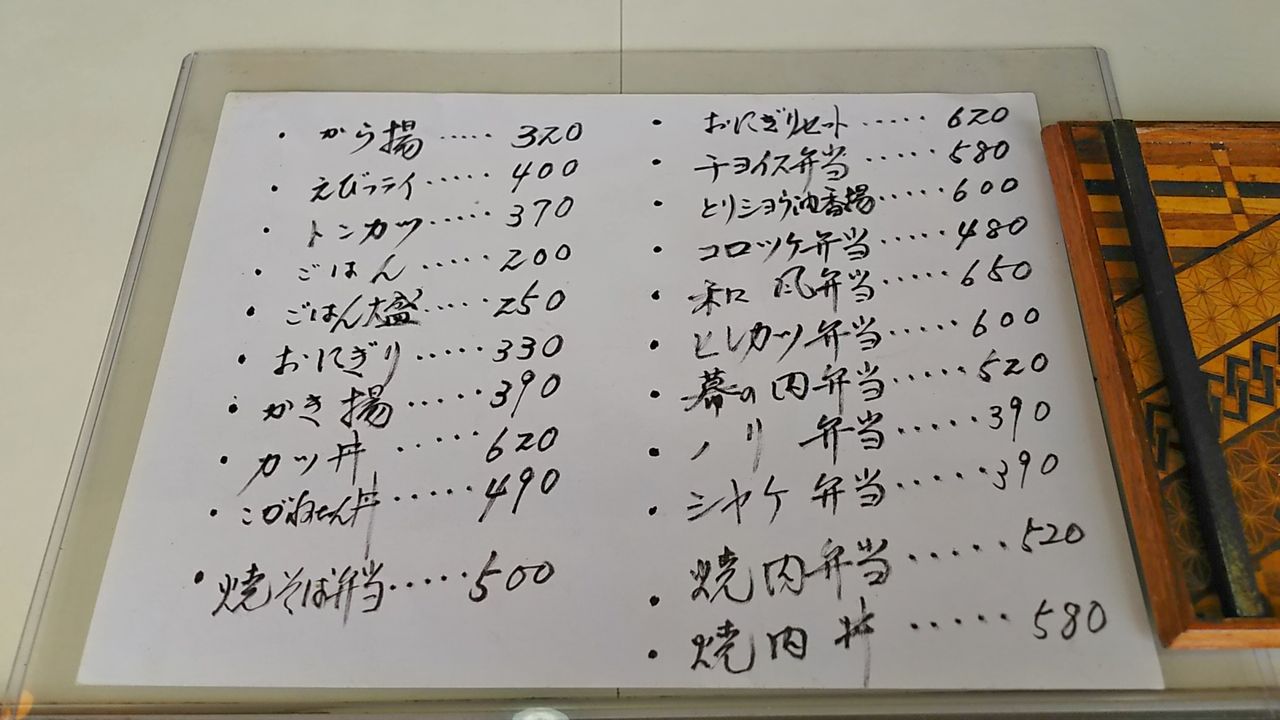 ・から揚‥‥‥320
・えびフライ‥‥‥400
・トンカツ‥‥‥370
・ごはん‥‥‥200
・ごはん大盛‥‥‥250
・おにぎり‥‥‥330
・かき揚‥‥‥390
・カツ丼‥‥‥620
・こがねせん丼‥‥‥490
・焼そば弁当‥‥‥500
・おにぎりセット‥‥‥620
・チョイス弁当‥‥‥580
・とりショウ油香揚‥‥‥600
・コロッケ弁当‥‥‥480
・和風弁当‥‥‥650
・ヒレカツ弁当‥‥‥600
・幕の内弁当‥‥‥520
・ノリ弁当‥‥‥390
・シャケ弁当‥‥‥390
・焼肉弁当‥‥‥520
・焼肉丼‥‥‥580